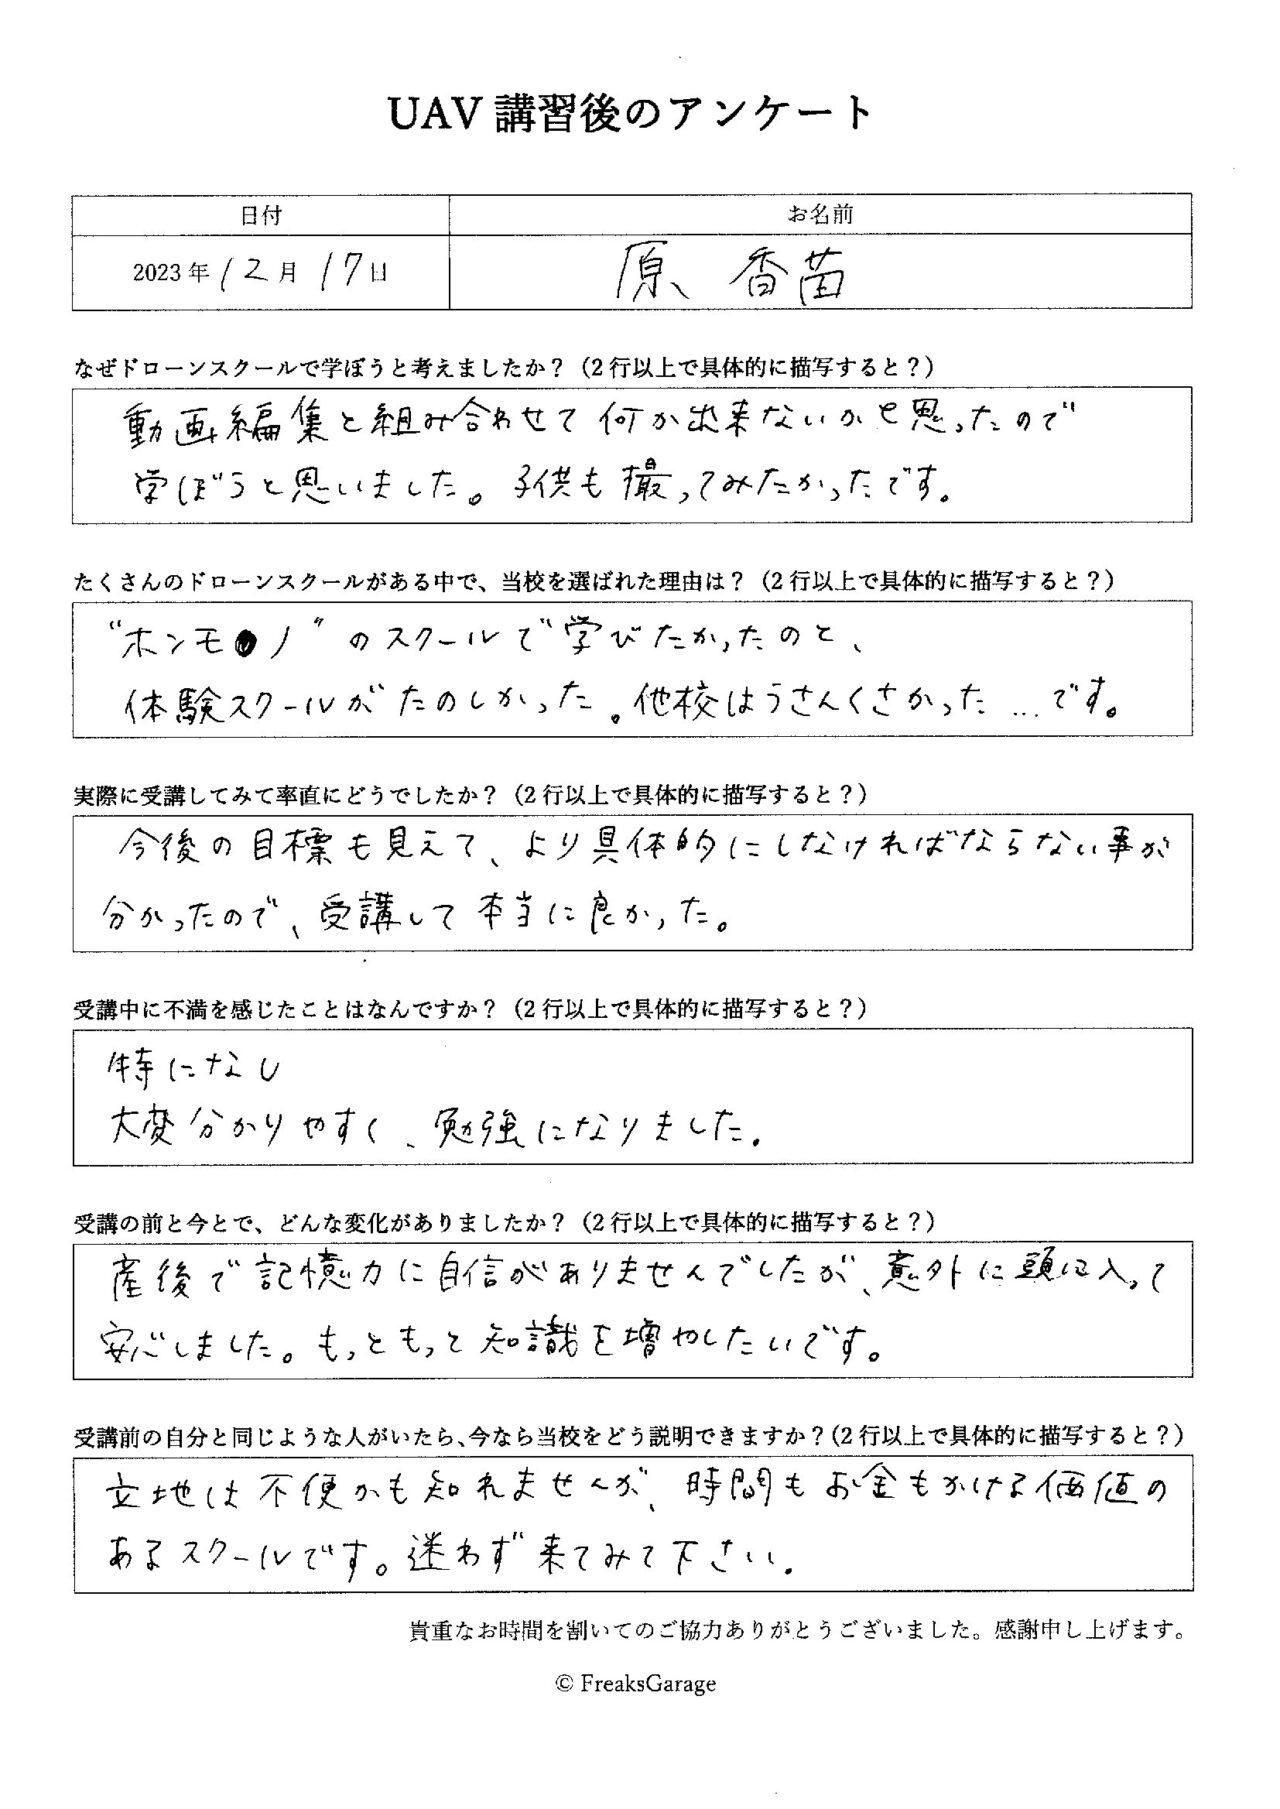 UAV 講習後のアンケート
日付 お名前
2023年12月17日 原 香苗
なぜドローンスクールで学ぼうと考えましたか？（2行以上で具体的に描写すると？）
動画編集と組み合わせて何か出来ないかと思ったので
学ぼうと思いました。子供も撮ってみたかったです。
たくさんのドローンスクールがある中で、当校を選ばれた理由は？（2行以上で具体的に描写すると？）
"ホンモノ"のスクールで学びたかったのと、
体験スクールがたのしかった。他校はうさんくさかった…です。
実際に受講してみて率直にどうでしたか？（2行以上で具体的に描写すると？）
今後の目標も見えて、より具体的にしなければならない事が
分かったので、受講して本当に良かった。
受講中に不満を感じたことはなんですか？（2行以上で具体的に描写すると？）
特になし
大変分かりやすく、勉強になりました。
受講の前と今とで、どんな変化がありましたか？（2行以上で具体的に描写すると？）
産後で記憶力に自信がありませんでしたが、意外に頭に入って
安心しました。もっともっと知識を増やしたいです。
受講前の自分と同じような人がいたら、今なら当校をどう説明できますか？（2行以上で具体的に描写すると？）
立地は不便かも知れませんが、時間もお金もかける価値の
あるスクールです。迷わず来てみて下さい。
貴重なお時間を割いてのご協力ありがとうございました。感謝申し上げます。
© FreaksGarage